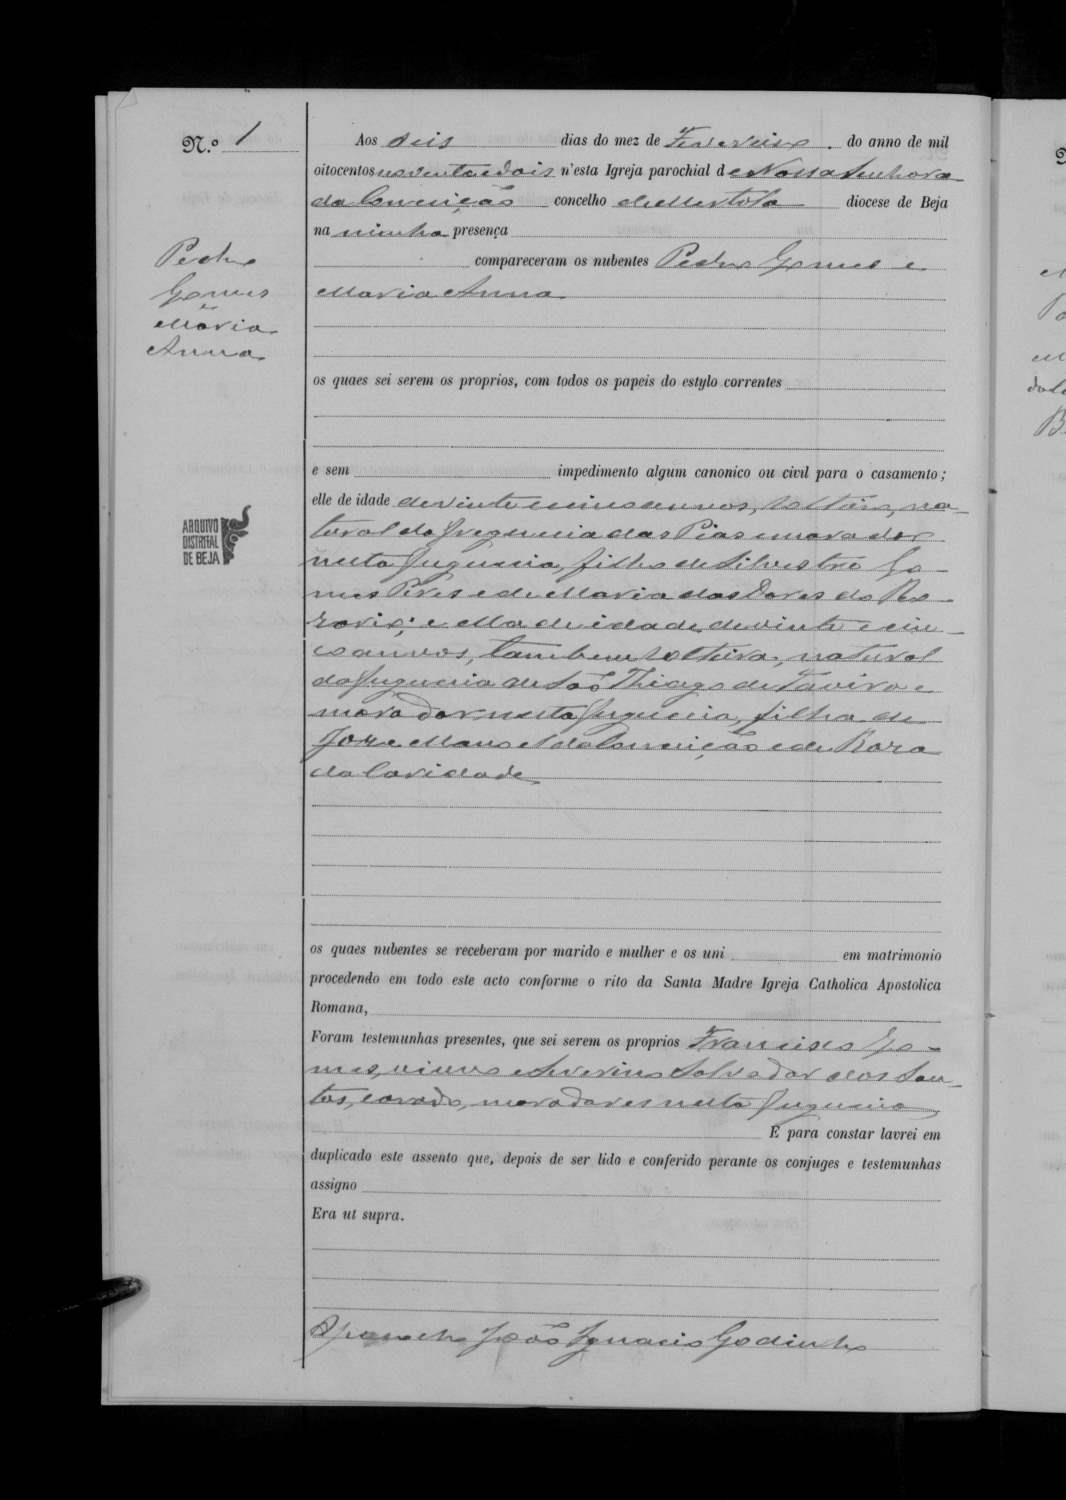 N.º 1
Aos seis dias do mez de Fevereiro do anno de mil
oitocentos noventa e dois n'esta Igreja parochial de Nossa Senhora
da Conceição concelho de Mertola diocese de Beja
na minha presença
compareceram os nubentes Pedro Gomes e
Maria Anna
Pedro
Gomes
e
Maria
Anna
os quaes sei serem os proprios, com todos os papeis do estylo correntes
e sem impedimento algum canonico ou civil para o casamento;
elle de idade de vinte e cinco annos, solteiro, na-
tural da freguezia das Pias e morador
nesta freguezia, filho de Silvestre Go-
mes Pires e de Maria das Dores do Ro-
zario; e ella de idade de vinte e cin-
co annos, tambem solteira, natural
da freguezia de São Thiago de Tavira e
moradora nesta freguezia, filha de
José Manoel da Conceição e de Roza
da Caridade
ARQUIVO
DISTRITAL
DE BEJA
os quaes nubentes se receberam por marido e mulher e os uni em matrimonio
procedendo em todo este acto conforme o rito da Santa Madre Igreja Catholica Apostolica
Romana,
Foram testemunhas presentes, que sei serem os proprios Francisco Go-
mes, viuvo e Severino Salvador dos San-
tos, casado, moradores nesta freguezia
E para constar lavrei em
duplicado este assento que, depois de ser lido e conferido perante os conjuges e testemunhas
assigno
Era ut supra.
O parocho João Ignacio Godinho